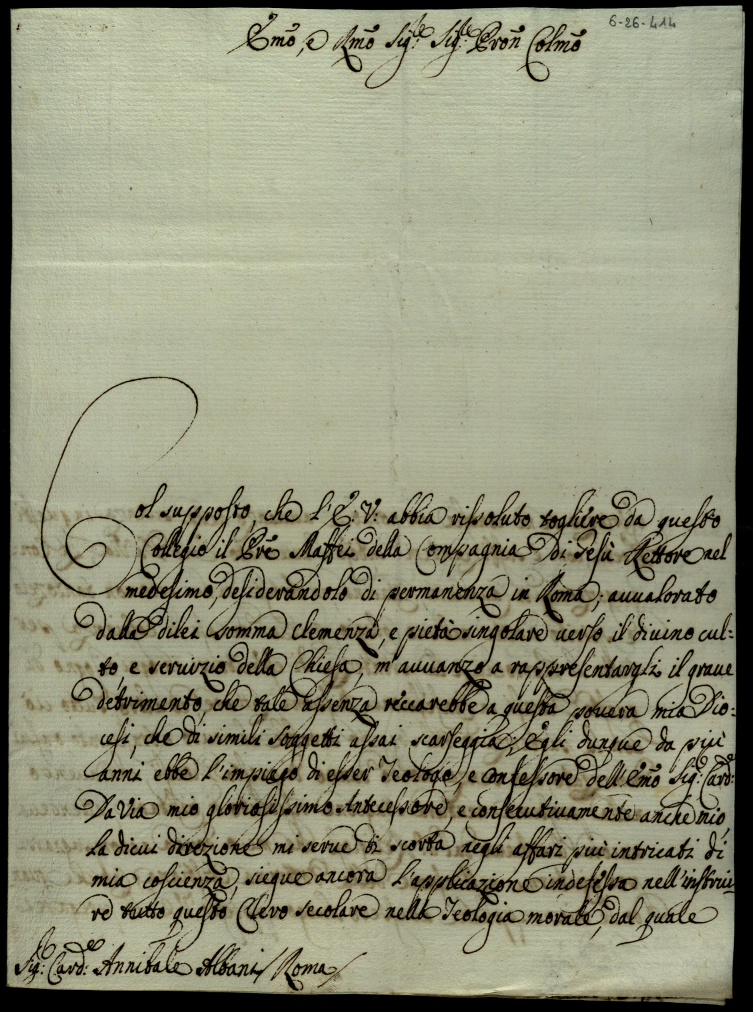 6-26-414
Emõ, e Rmõ Sig.re Sig.re Pron̄ Colmõ
Col supposto, che l'E: V: abbia rissoluto togliere da questo
Collegio il Prẽ Maffei della Compagnia di Gesù Rettore nel
medesimo, desiderandolo di permanenza in Roma; avvalorato
dalla dilei somma clemenza, e pietà singolare verso il divino cul=
to, e servizio della Chiesa, m'avvanzo a rappresentargli il grave
detrimento, che tale assenza reccarebbe a questa povera mia Dio=
cesi, che di simili soggetti assai scarseggia; Egli dunque da più
anni ebbe l'impiego di esser Teologo, e confessore dell'Emõ Sig.r Card:
Davia mio gloriosissimo Antecessore, e consecutivamente anche mio,
la dicui direzione mi serve di scorta negli affari più intricati di
mia coscienza; siegue ancora l'applicazione indefessa nell'instrui-
re tutto questo Clero secolare nella Teologia morale, dal quale
Sig.re Card.le Annibale Albani / Roma /